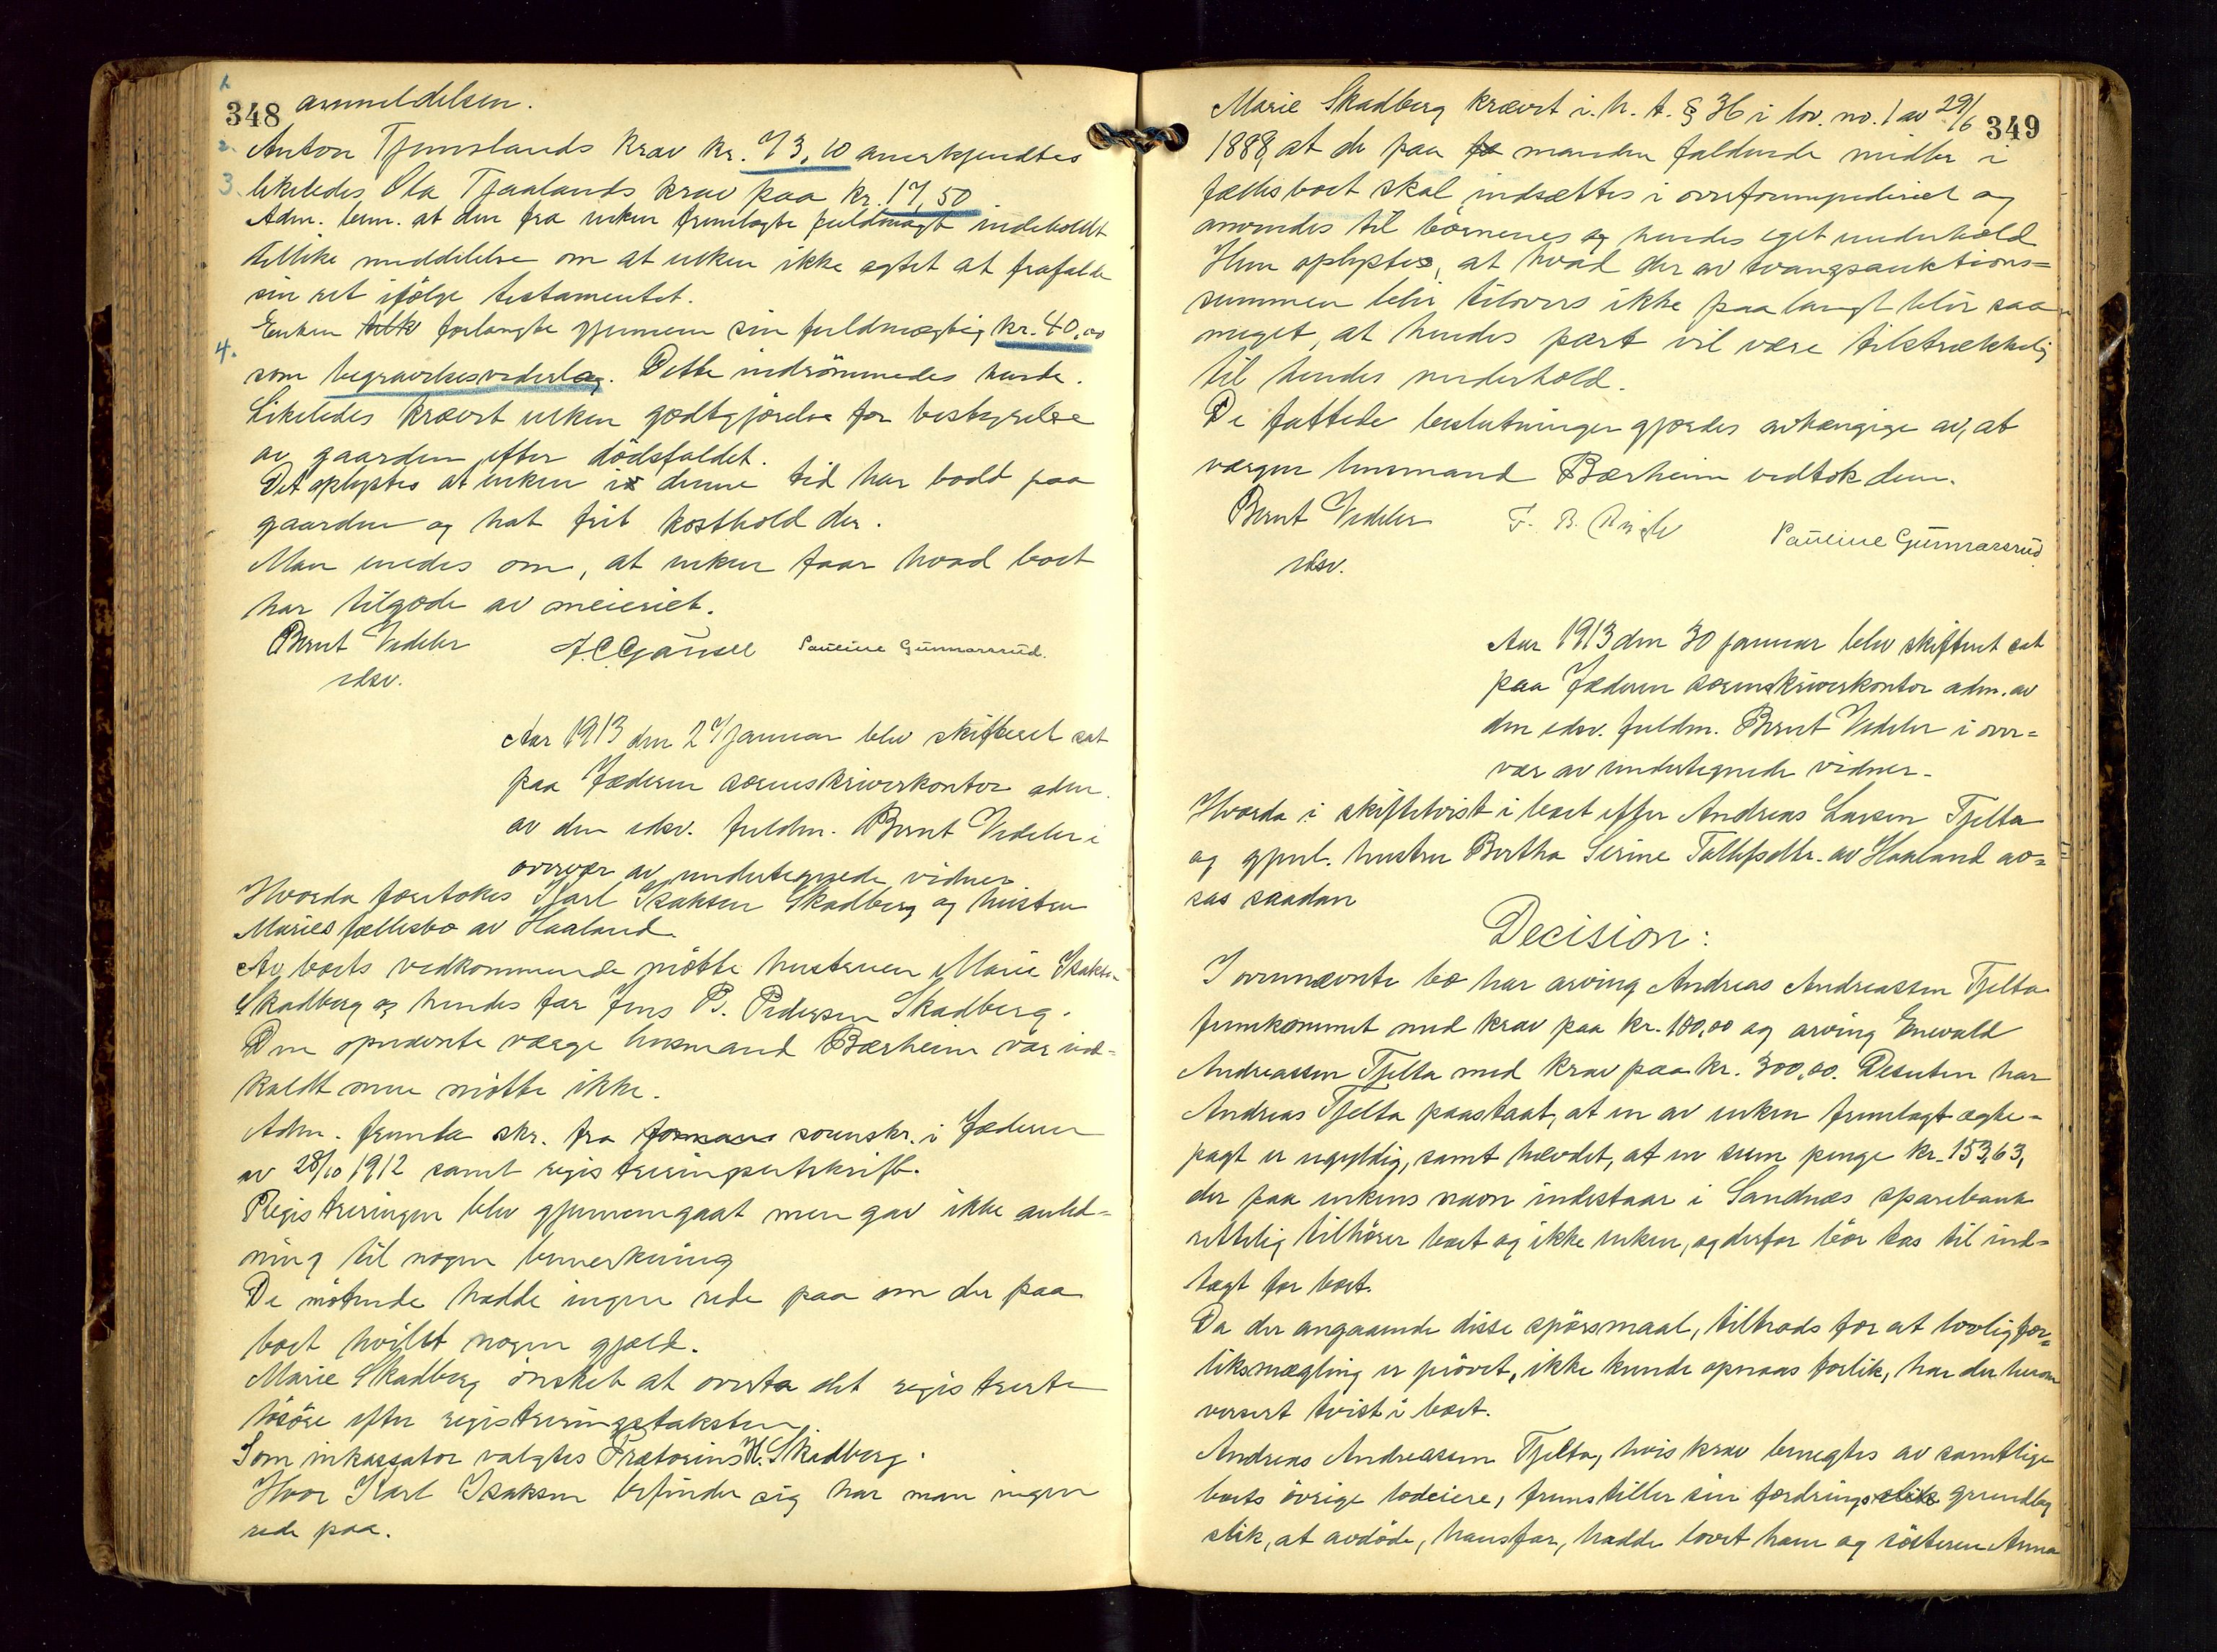 1.
348 anmeldelsen.
2. Anton Tjemslands krav kr. 73,10 anerkjendtes
3. likeledes Ola Tjaalands krav paa kr. 17,50
Adm. bem. at den fra enken fremlagte fuldmagt indeholdt
tillike meddelelse om at enken ikke agtet at frafalde
sin ret ifölge testamentet.
Enken forlangte gjennem sin fuldmægtig kr. 40,00
4. som begravelsesvederlag. Dette indrömmedes hende.
Likeledes krævet enken godtgjörelse for bestyrelse
av gaarden efter dödsfaldet.
Det oplystes at enken i denne tid har bodd paa
gaarden og hat frit kosthold der.
Man enedes om, at enken faar hvad boet
har tilgode av meieriet.
Bernt Vedeler J.C. Gausel Pauline Gunnarsrud.
edsv.
Aar 1913 den 27 januar blev skifteret sat
paa Jæderen sorenskriverkontor adm.
av den edsv. fuldm. Bernt Vedeler i
overvær av undertegnede vidner
Hvorda foretokes Karl Isaksen Skadberg og hustru
Maries fællesbo av Haaland.
Av boets vedkommende mötte hustruen Marie Isaksen
Skadberg og hendes far Jens B. Pedersen Skadberg.
Den opnævnte værge husmand Bærheim var ind-
kaldt men mötte ikke.
Adm. fremla skr. fra formans sorenskr. i Jæderen
av 28/10 1912 samt registreringsutskrift.
Registreringen blev gjennemgaat men gav ikke anled-
ning til nogen bemerkning
De mötende hadde ingen rede paa om der paa
boet hvilet nogen gjæld.
Marie Skadberg önsket at overta det registrerte
lösöre efter registreringstaksten.
Som inkassator valgtes Prætorius H. Skadberg.
Hvor Karl Isaksen befinder sig har man ingen
rede paa.
349
Marie Skadberg krævet i. h. t. § 36 i lov. no. 1 av 29/6
1888, at de paa manden faldende midler i
fællesboet skal indsættes i overformynderiet og
anvendes til börnenes og hendes eget underhold
Hun oplyste, at hvad der av tvangsauktions-
summen blir tilovers ikke paa langt blir saa
meget, at hendes part vil være tilstrækkelig
til hendes underhold.
De fattede beslutninger gjordes avhængige av, at
værgen husmand Bærheim vedtok dem.
Bernt Vedeler F. B. Pauline Gunnarsrud
edsv.
Aar 1913 den 30 januar blev skifteret sat
paa Jæderen sorenskriverkontor adm. av
den edsv. fuldm. Bernt Vedeler i over-
vær av undertegnede vidner.
Hvorda i skiftetvist i boet efter Andreas Larsen Tjelta
og gjenl. hustru Bertha Serine Tollefsdtr. av Haaland av-
sas saadan
Decision:
I ovennævnte bo har arving Andreas Andreassen Tjelta
fremkommet med krav paa kr. 100,00 og arving Enevald
Andreassen Tjelta med krav paa kr. 300,00. Desuten har
Andreas Tjelta paastaat, at en av enken fremlagt ægte-
pagt er ugyldig, samt hævdet, at en sum penge kr. 153,63,
der paa enkens navn indestaar i Sandnes sparebank
rettelig tilhörer boet og ikke enken, og derfor bör tas til ind-
tægt for boet.
Da der angaaende disse spörsmaal, tiltrods for at lovlig for-
liksmægling er prövet, ikke kunde opnaaes forlik, har der herom
versert tvist i boet.
Andreas Andreassen Tjelta, hvis krav benegtes av samtlige
boets övrige lodeiere, fremstiller sin fordrings slik grundlag
slik, at avdöde, hans far, hadde lovet ham og sösteren Anna